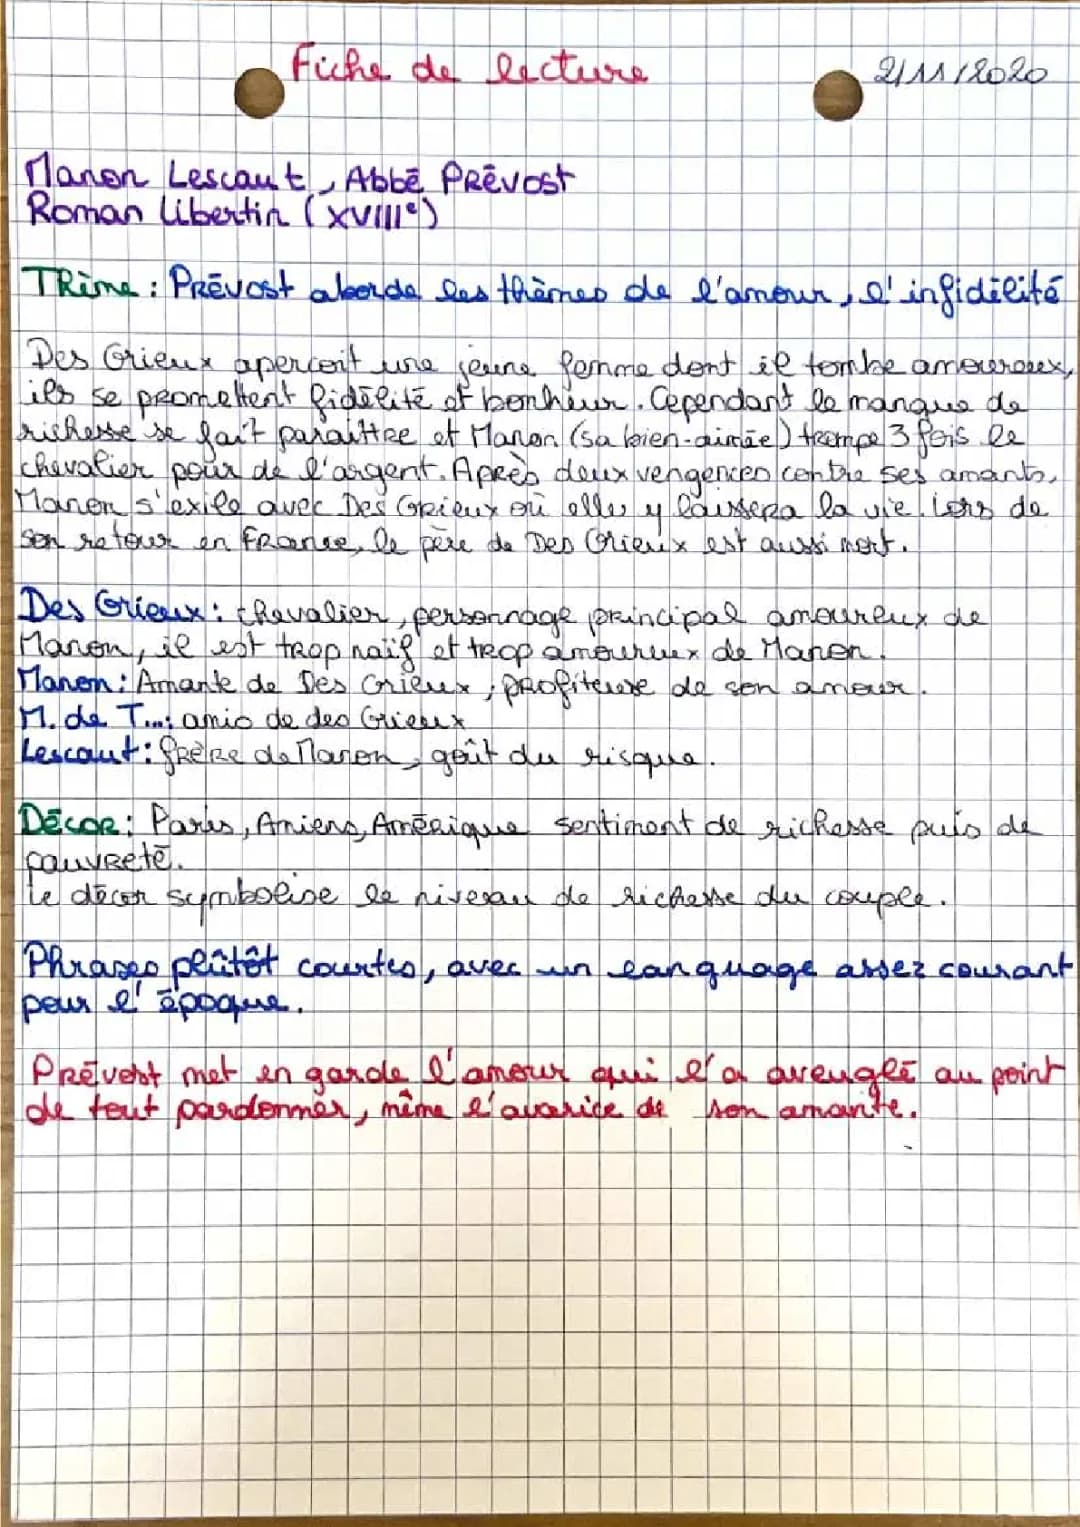 Fiche de lecture
2/11/2020
Manon Lescaut, Abbé Prévost
Roman libertin (XVIIIe)
Thème : Prévost aborde les thèmes de l'amour, l'infidélité
Des Grieux aperçoit une jeune femme dont il tombe amoureux,
ils se promettent fidélité et bonheur. Cependant le manque de
richesse se fait paraittre et Manon (sa bien-aimée) trompe 3 fois le
chevalier pour de l'argent. Après deux vengences contre ses amants,
Manon s'exile avec Des Grieux où elles y laissera la vie. Lors de
son retour en France, le père de Des Grieux est aussi mort.
Des Grieux : chevalier, personnage principal amoureux de
Manon, il est trop naïf et trop amoureux de Manon.
Manon : Amante de Des Grieux, profiteuse de son amour.
M. de T... : amis de des Grieux
Lescaut : frère de Manon, goût du risque.
Décor : Paris, Amiens, Amérique sentiment de richesse puis de
pauvreté.
Le décor symbolise le niveau de richesse du couple.
Phrases plûtôt courtes, avec un language assez courant
pour l'époque.
Prévost met en garde l'amour qui l'a aveuglé au point
de tout pardonner, même l'avarice de son amante.